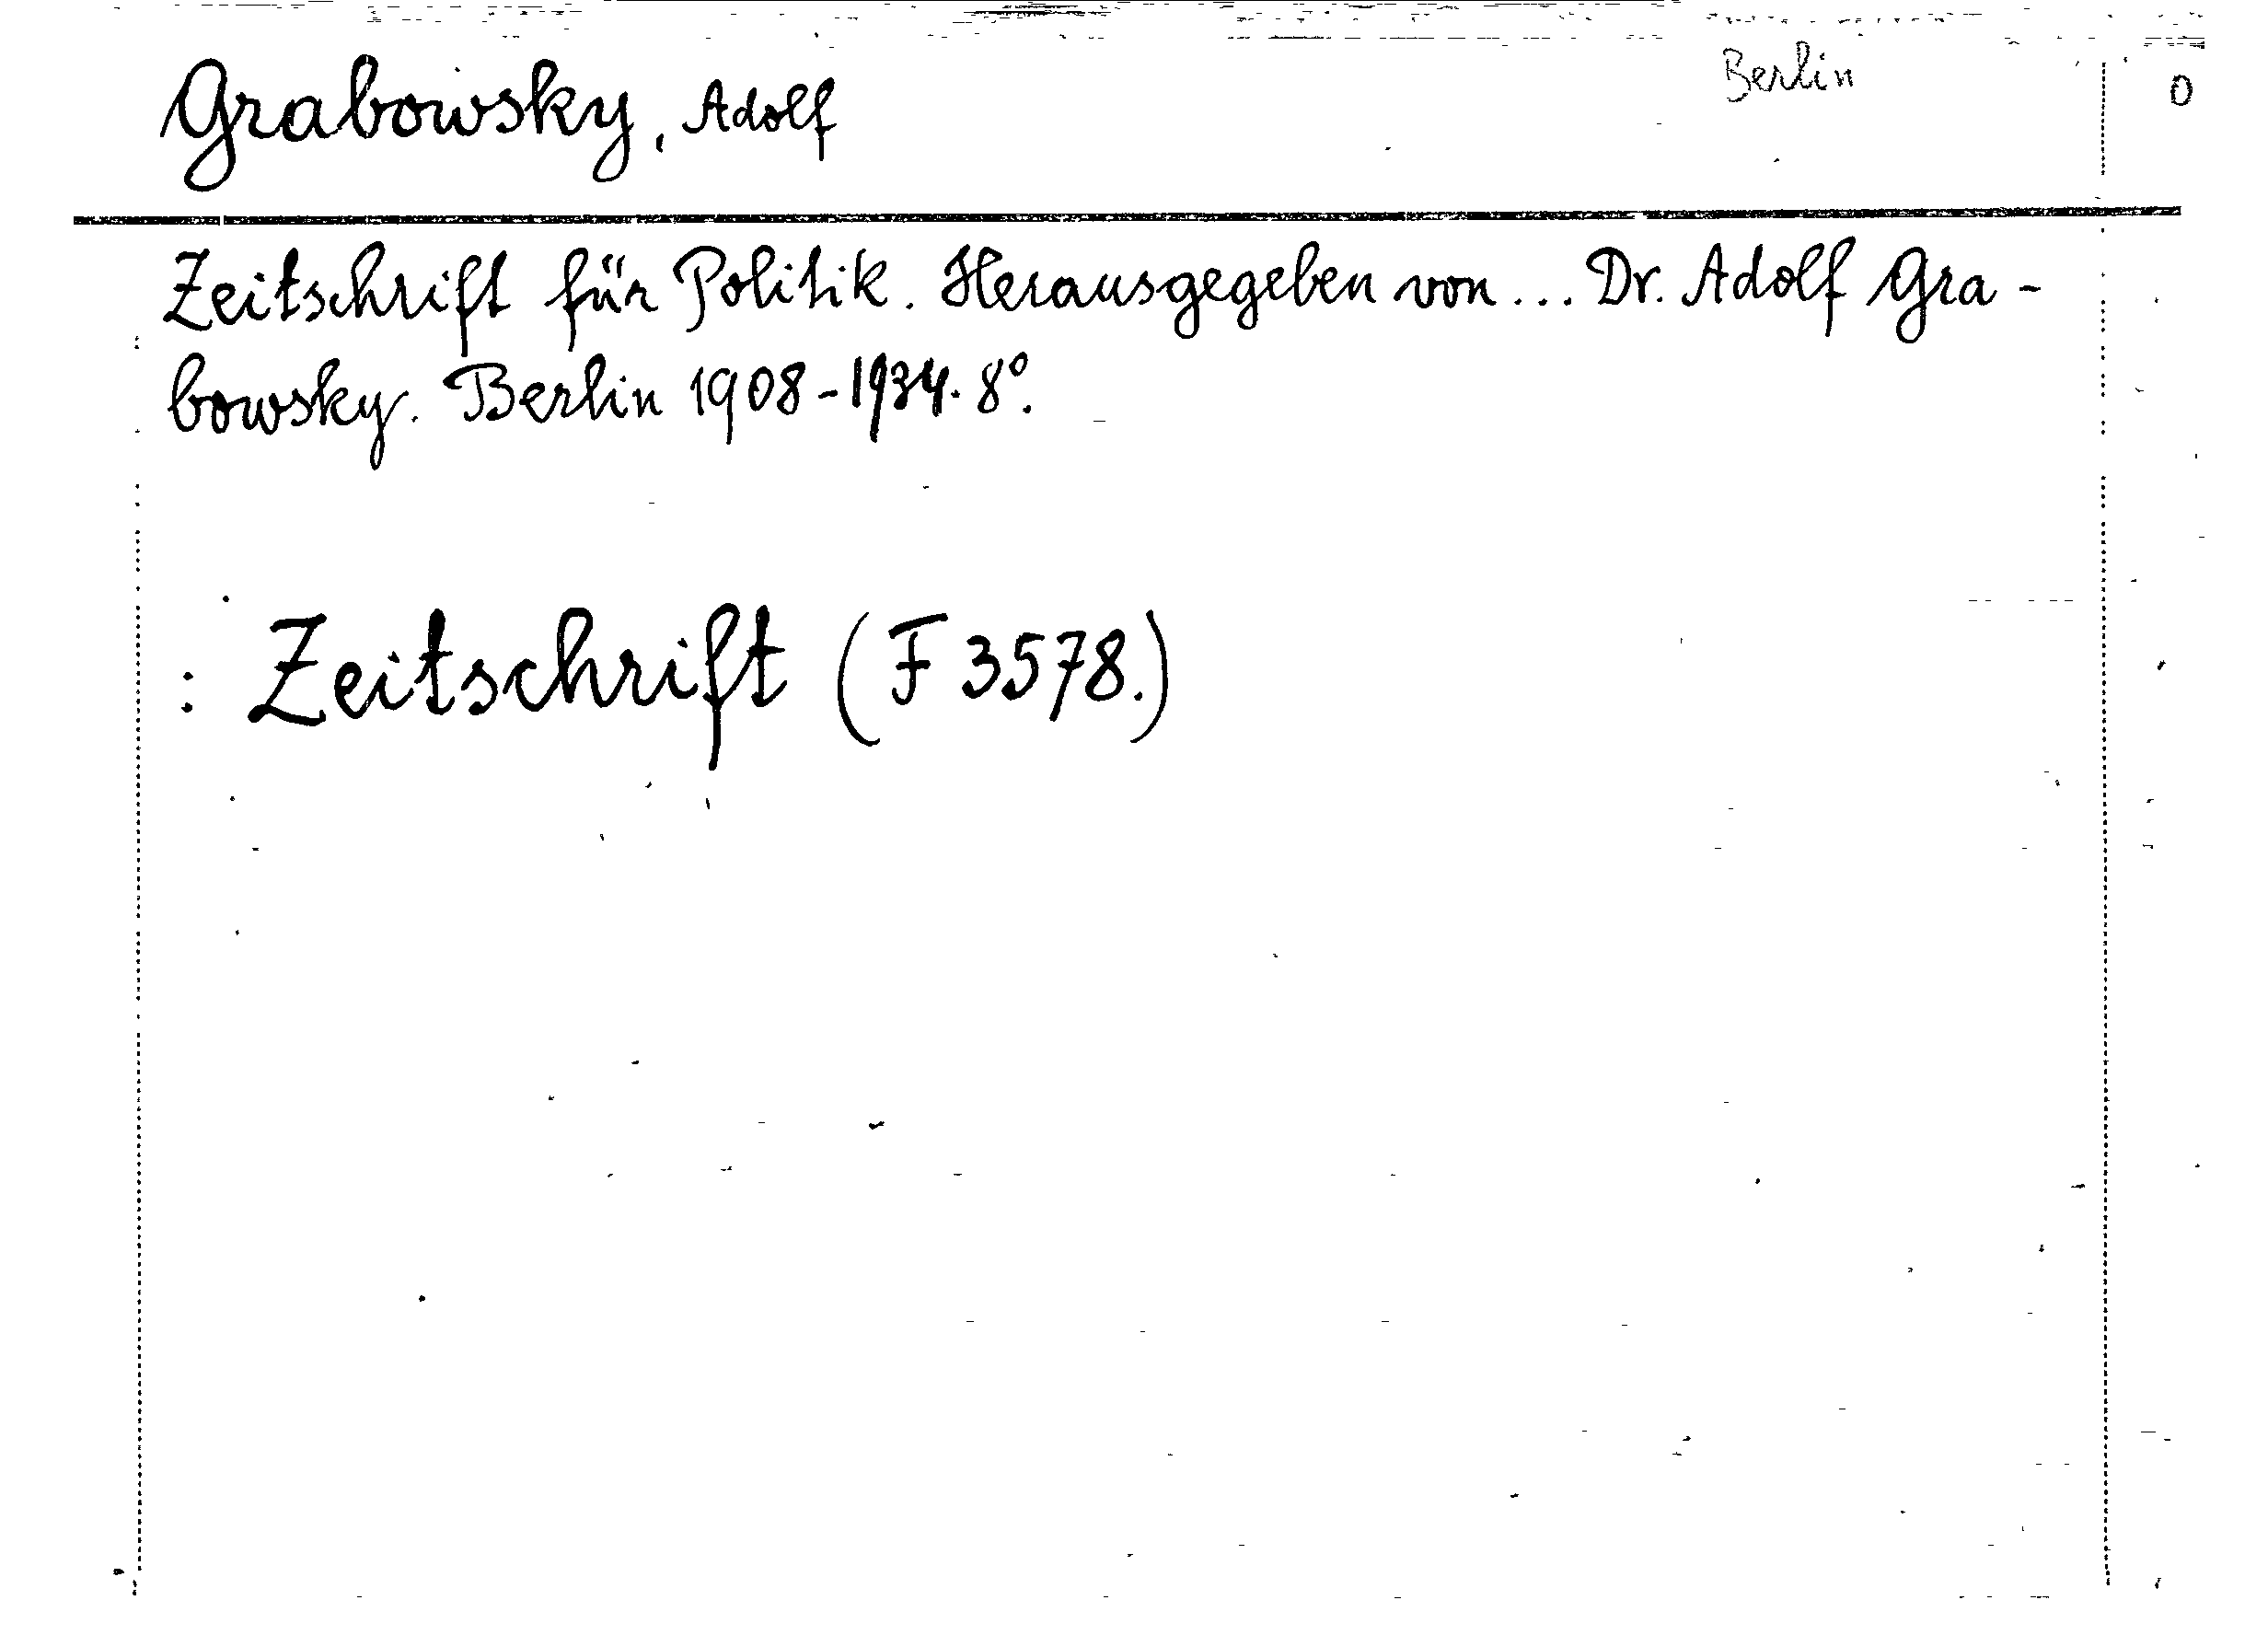 Berlin 0
Grabowsky, Adolf
Zeitschrift für Politik. Herausgegeben von... Dr. Adolf Gra-
bowsky. Berlin 1908-1934. 8°.
: Zeitschrift (F 3578.)